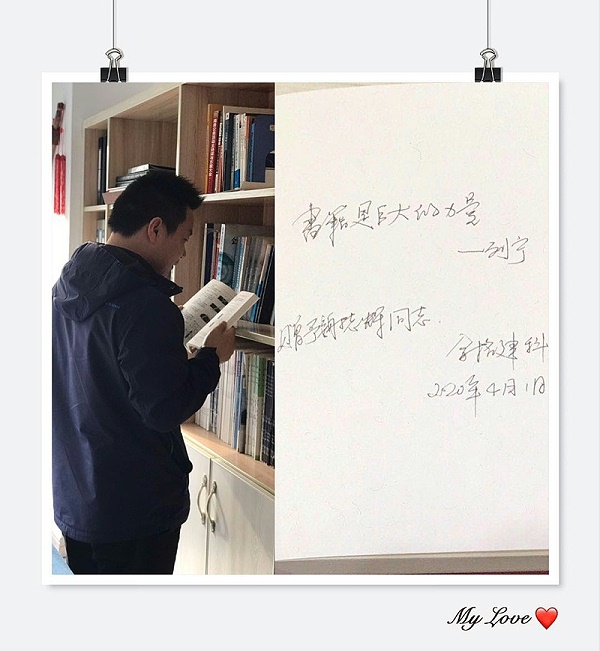 書籍是巨大的力量
—列宁
赠予 志辉同志.
建科
2020年4月1日
My Love